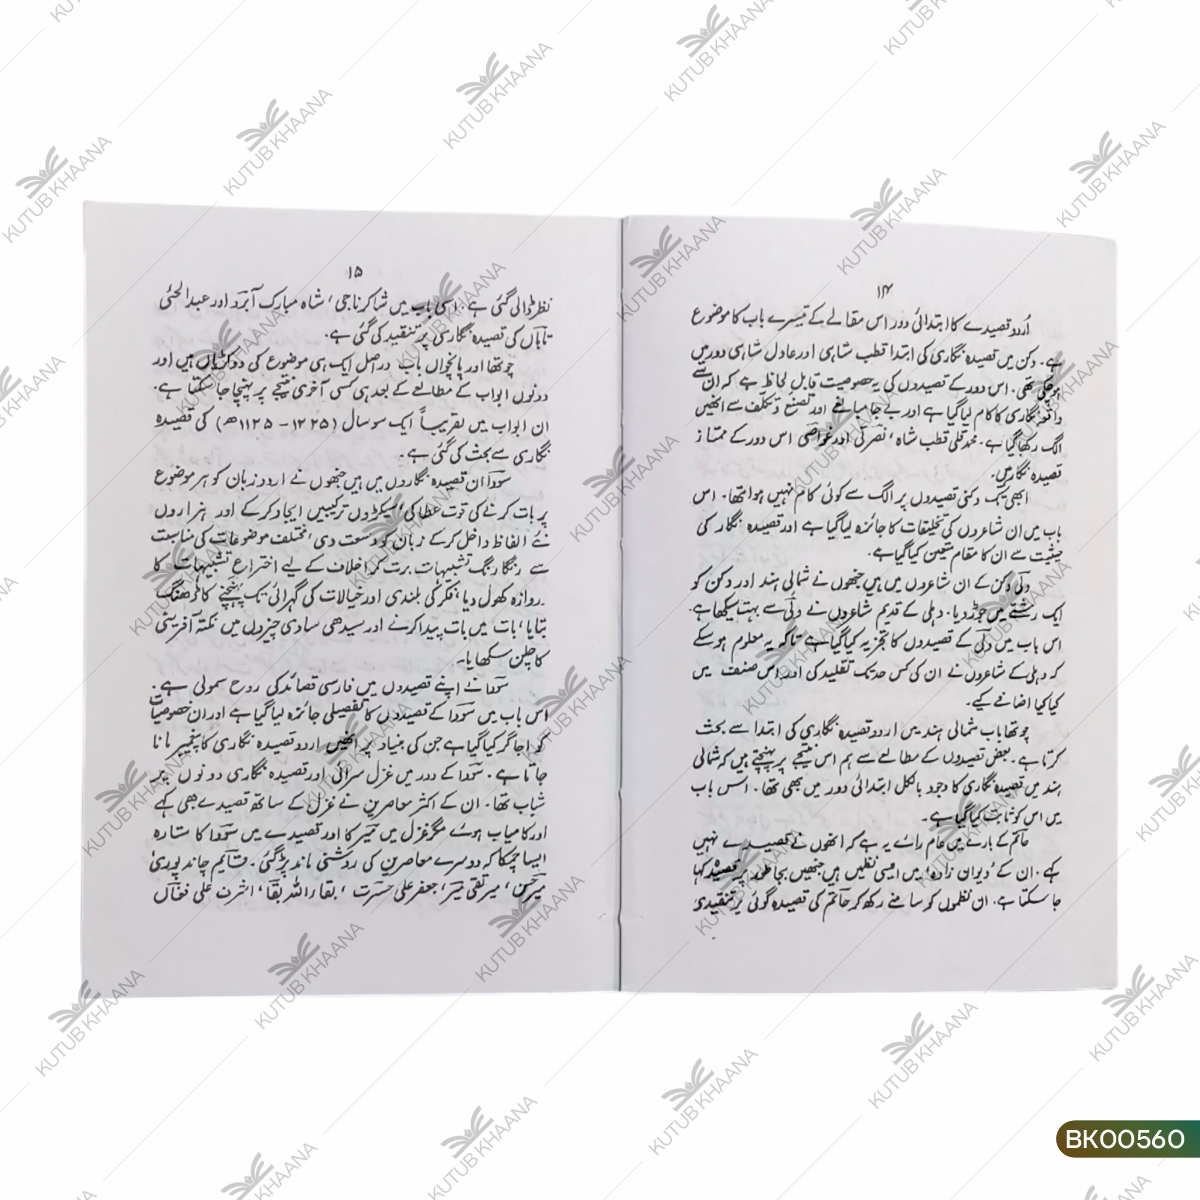 ۱۴
اُردو قصیدے کا ابتدائی دور اس مقالے کے تیسرے باب کا موضوع
ہے۔ دکن میں قصیدہ نگاری کی ابتدا قطب شاہی اور عادل شاہی دور میں
ہو چکی تھی۔ اس دور کے قصیدوں کی یہ خصوصیت قابلِ لحاظ ہے کہ ان سے
واقعہ نگاری کا کام لیا گیا ہے اور بے جا مبالغے اور تصنع و تکلف سے انھیں
الگ رکھا گیا ہے۔ محمد قلی قطب شاہ، نصرتی اور غواصی اس دور کے ممتاز
قصیدہ نگار ہیں۔
ابھی تک دکنی قصیدوں پر الگ سے کوئی کام نہیں ہوا تھا۔ اس
باب میں ان شاعروں کی تخلیقات کا جائزہ لیا گیا ہے اور قصیدہ نگار کی
حیثیت سے ان کا مقام متعین کیا گیا ہے۔
ولی دکن کے ان شاعروں میں ہیں جنھوں نے شمالی ہند اور دکن کو
ایک رشتے میں جوڑ دیا۔ دہلی کے قدیم شاعروں نے ولی سے بہت سیکھا ہے۔
اس باب میں ولی کے قصیدوں کا تجزیہ کیا گیا ہے تاکہ یہ معلوم ہو سکے
کہ دہلی کے شاعروں نے ان کی کس حد تک تقلید کی اور اس صنف میں
کیا کیا اضافے کیے۔
چوتھا باب شمالی ہند میں اردو قصیدہ نگاری کی ابتدا سے بحث
کرتا ہے۔ بعض قصیدوں کے مطالعے سے ہم اس نتیجے پر پہنچتے ہیں کہ شمالی
ہند میں قصیدہ نگاری کا وجود بالکل ابتدائی دور میں بھی تھا۔ اس باب
میں اس کو ثابت کیا گیا ہے۔
حاتم کے بارے میں عام رائے یہ ہے کہ انھوں نے قصیدے نہیں
کہے۔ ان کے 'دیوان زادہ' میں ایسی نظمیں ہیں جنھیں بجا طور پر قصیدہ کہا
جا سکتا ہے۔ ان نظموں کو سامنے رکھ کر حاتم کی قصیدہ گوئی پر تنقیدی
۱۵
نظر ڈالی گئی ہے۔ اسی باب میں شاکر ناجی، شاہ مبارک آبرو اور عبدالحئی
تاباں کی قصیدہ نگاری پر تنقید کی گئی ہے۔
چوتھا اور پانچواں باب دراصل ایک ہی موضوع کی دو کڑیاں ہیں اور
دونوں ابواب کے مطالعے کے بعد ہی کسی آخری نتیجے پر پہنچا جا سکتا ہے۔
ان ابواب میں تقریباً ایک سو سال (۱۲۲۵ - ۱۱۲۵ھ) کی قصیدہ
نگاری سے بحث کی گئی ہے۔
سودا ان قصیدہ نگاروں میں ہیں جنھوں نے اردو زبان کو ہر موضوع
پر بات کرنے کی قوت عطا کی، سیکڑوں ترکیبیں ایجاد کر کے اور ہزاروں
نئے الفاظ داخل کر کے زبان کو وسعت دی، مختلف موضوعات کی مناسبت
سے رنگا رنگ تشبیہات برت کر اخلاف کے لیے اختراع تشبیہات کا
روازہ کھول دیا، فکر کی بلندی اور خیالات کی گہرائی تک پہنچنے کا ڈھنگ
بتایا، بات میں بات پیدا کرنے اور سیدھی سادی چیزوں میں نکتہ آفرینی
کا چلن سکھایا۔
سودا نے اپنے قصیدوں میں فارسی قصائد کی روح سمو لی ہے۔
اس باب میں سودا کے قصیدوں کا تفصیلی جائزہ لیا گیا ہے اور ان خصوصیات
کو اجاگر کیا گیا ہے جن کی بنیاد پر انھیں اردو قصیدہ نگاری کا پیغمبر مانا
جاتا ہے۔ سودا کے دور میں غزل سرائی اور قصیدہ نگاری دونوں پر
شباب تھا۔ ان کے اکثر معاصرین نے غزل کے ساتھ قصیدے بھی کہے
اور کامیاب ہوئے مگر غزل میں میر کا اور قصیدے میں سودا کا ستارہ
ایسا چمکا کہ دوسرے معاصرین کی روشنی ماند پڑ گئی۔ قایم چاند پوری،
میر حسن، میر تقی میر، جعفر علی حسرت، بقاء اللہ بقا، اشرف علی فغاں
KUTUB KHAANA
BK00560